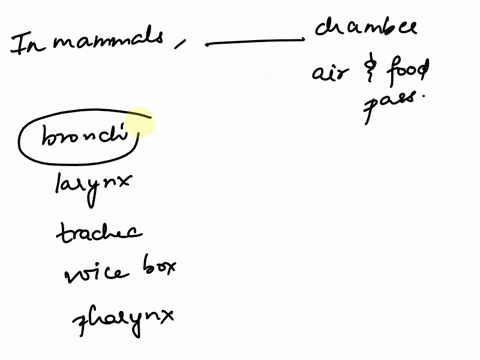 In mammals, ______ chamber
air & food
pass.
bronchi
larynx
trachea
voice box
pharynx